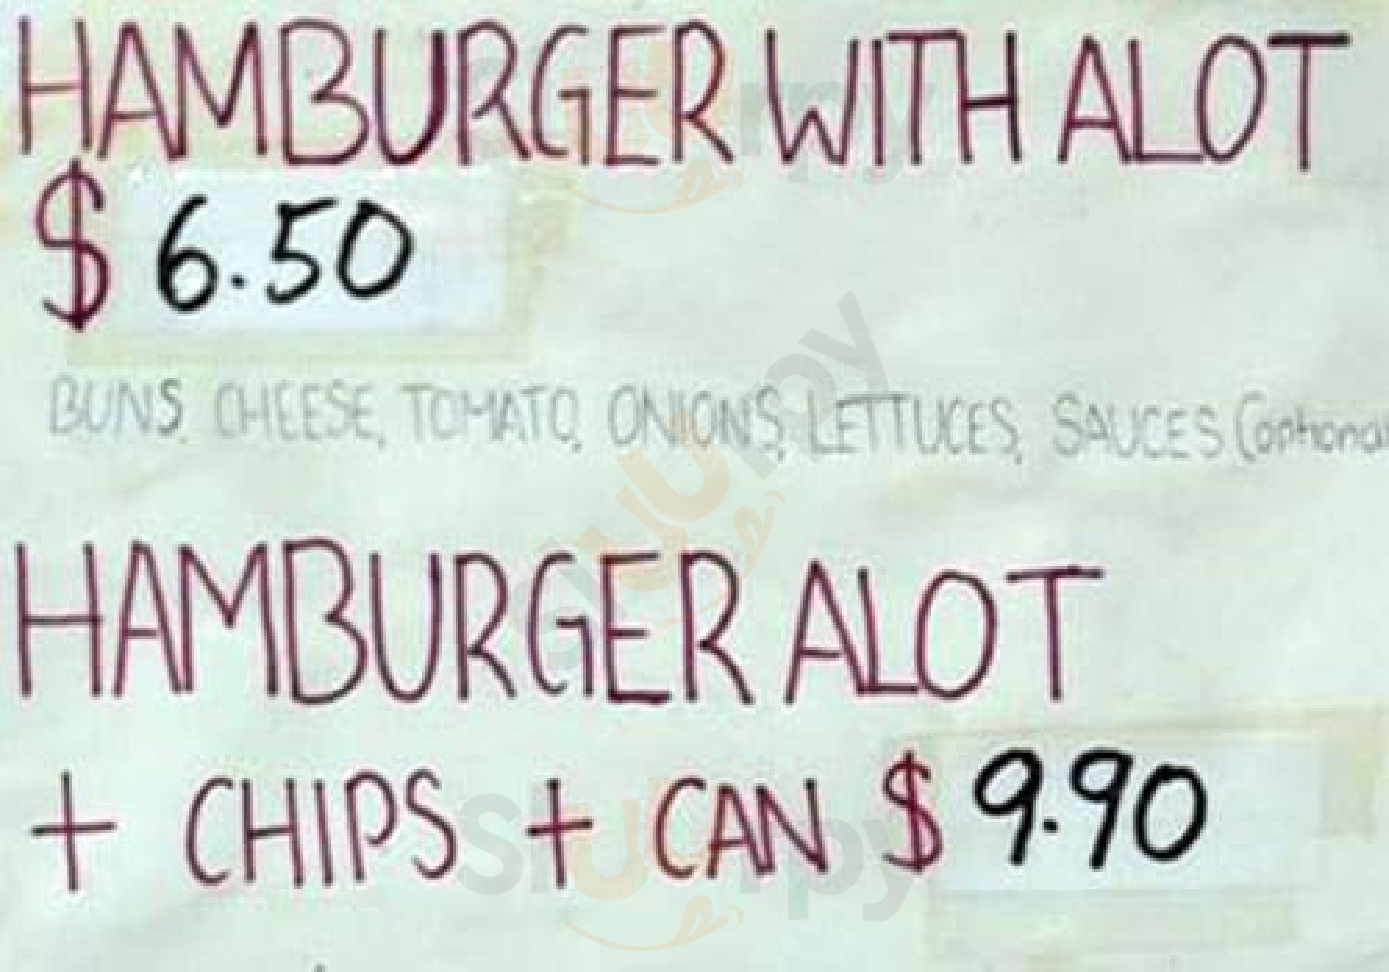 HAMBURGER WITH ALOT
$ 6.50
BUNS, CHEESE, TOMATO, ONIONS, LETTUCES, SAUCES (optional
HAMBURGER ALOT
+ CHIPS + CAN $ 9.90
Sluurpy
Sluurpy
Sluurpy